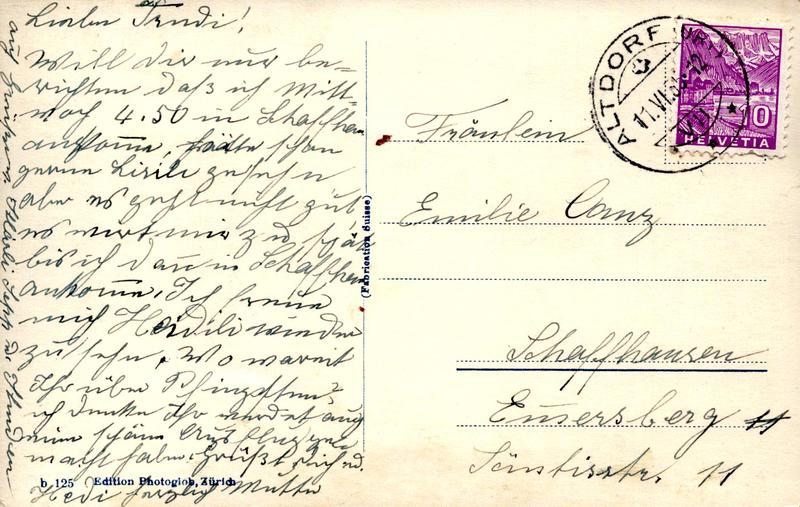 Lieber Trudi!
Will Dir nur be-
richten daß ich Mitt-
woch 4.50 in Schaffhau
ankomme, hätte schon
gerne Liseli gesehn
aber es geht nicht gut
es wird mir zu spät
bis ich dann in Schaffhau
ankomme. Ich freue
mich Heidili wieder
zu sehn. Wo waret
Ihr über Pfingsten?
ich denke Ihr werdet auch
einen schönen Ausflug ge-
macht haben. Grüßt Dich u.
Hedi herzlich Mutter
auf
b 125 Edition Photoglob, Zürich
(Fabrication Suisse)
ALTDORF (URI)
11.VI.
HELVETIA
10
Fräulein
Emilie Canz
Schaffhausen
Emersberg 11
Säntisstr. 11